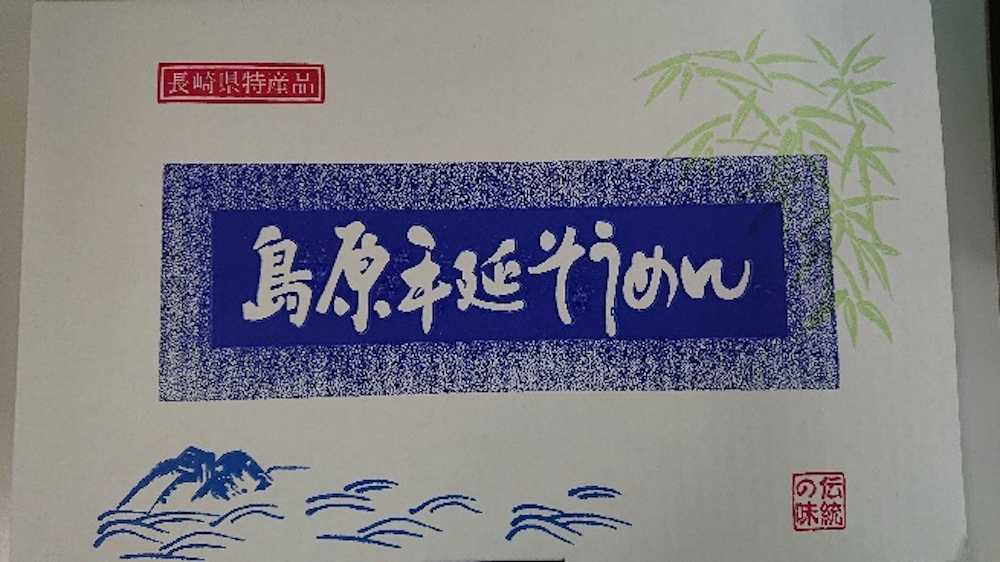 長崎県特産品
島原手延そうめん
伝統
の味